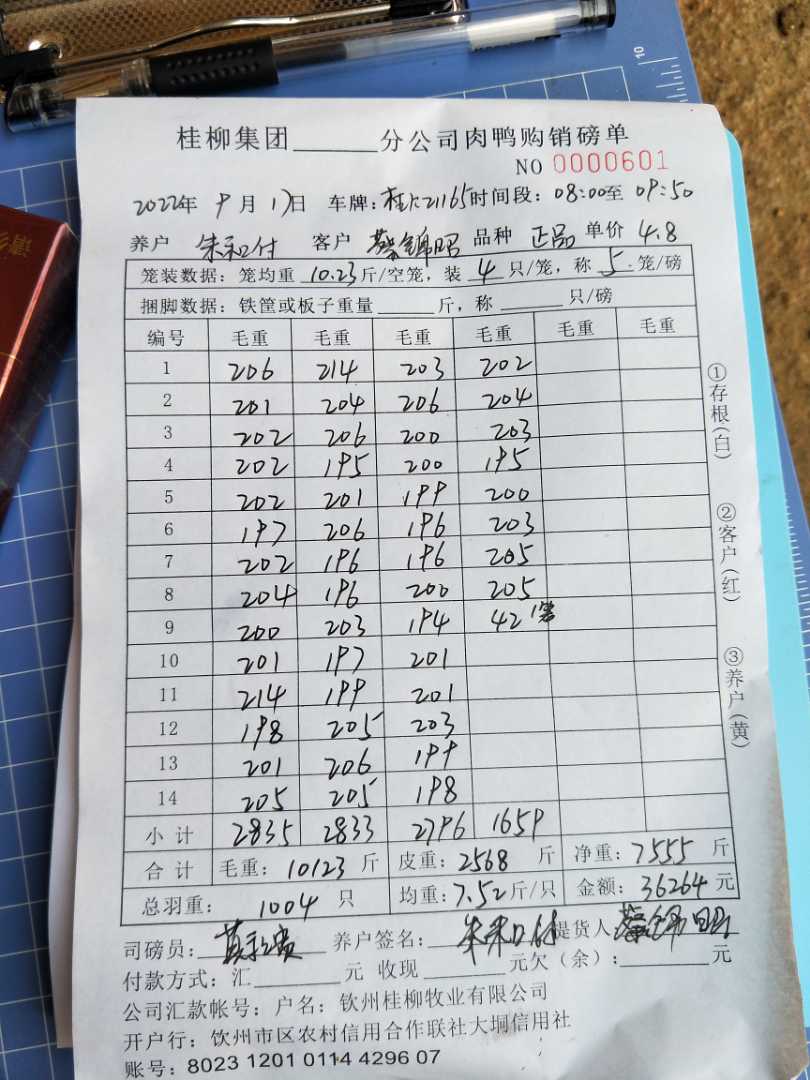 桂柳集团______分公司肉鸭购销磅单
NO 0000601
2022年 9月 17日 车牌:桂K21165 时间段:08:00至 09:50
养户 朱和付 客户 蔡锦昭 品种 正品 单价 4.8
笼装数据:笼均重 10.23 斤/空笼,装 4 只/笼,称 5 笼/磅
捆脚数据:铁筐或板子重量______斤,称______只/磅
编号 毛重 毛重 毛重 毛重 毛重 毛重
1 206 214 203 202
2 201 204 206 204
3 202 206 200 203
4 202 195 200 195
5 202 201 199 200
6 197 206 196 203
7 202 196 196 205
8 204 196 200 205
9 200 203 194 42 1笼
10 201 197 201
11 214 199 201
12 198 205 203
13 201 206 199
14 205 205 198
小计 2835 2833 2796 1659
合计 毛重:10123 斤 皮重:2568 斤 净重:7555 斤
总羽重: 1004 只 均重:7.52斤/只 金额:36264元
司磅员: 养户签名:朱和付 提货人 蔡锦昭
付款方式:汇______元 收现______元欠(余):______元
公司汇款帐号:户名:钦州桂柳牧业有限公司
开户行:钦州市区农村信用合作联社大垌信用社
账号:8023 1201 0114 4296 07
①存根(白)
②客户(红)
③养户(黄)
10